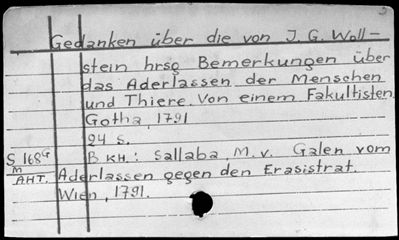 Gedanken über die von J. G. Woll-
stein hrsg Bemerkungen über
das Aderlassen der Menschen
und Thiere. Von einem Fakultisten
Gotha, 1791
24 S.
S 168G B KH.: Sallaba M. v. Galen vom
M
AHT. Aderlassen gegen den Erasistrat.
Wien, 1791.